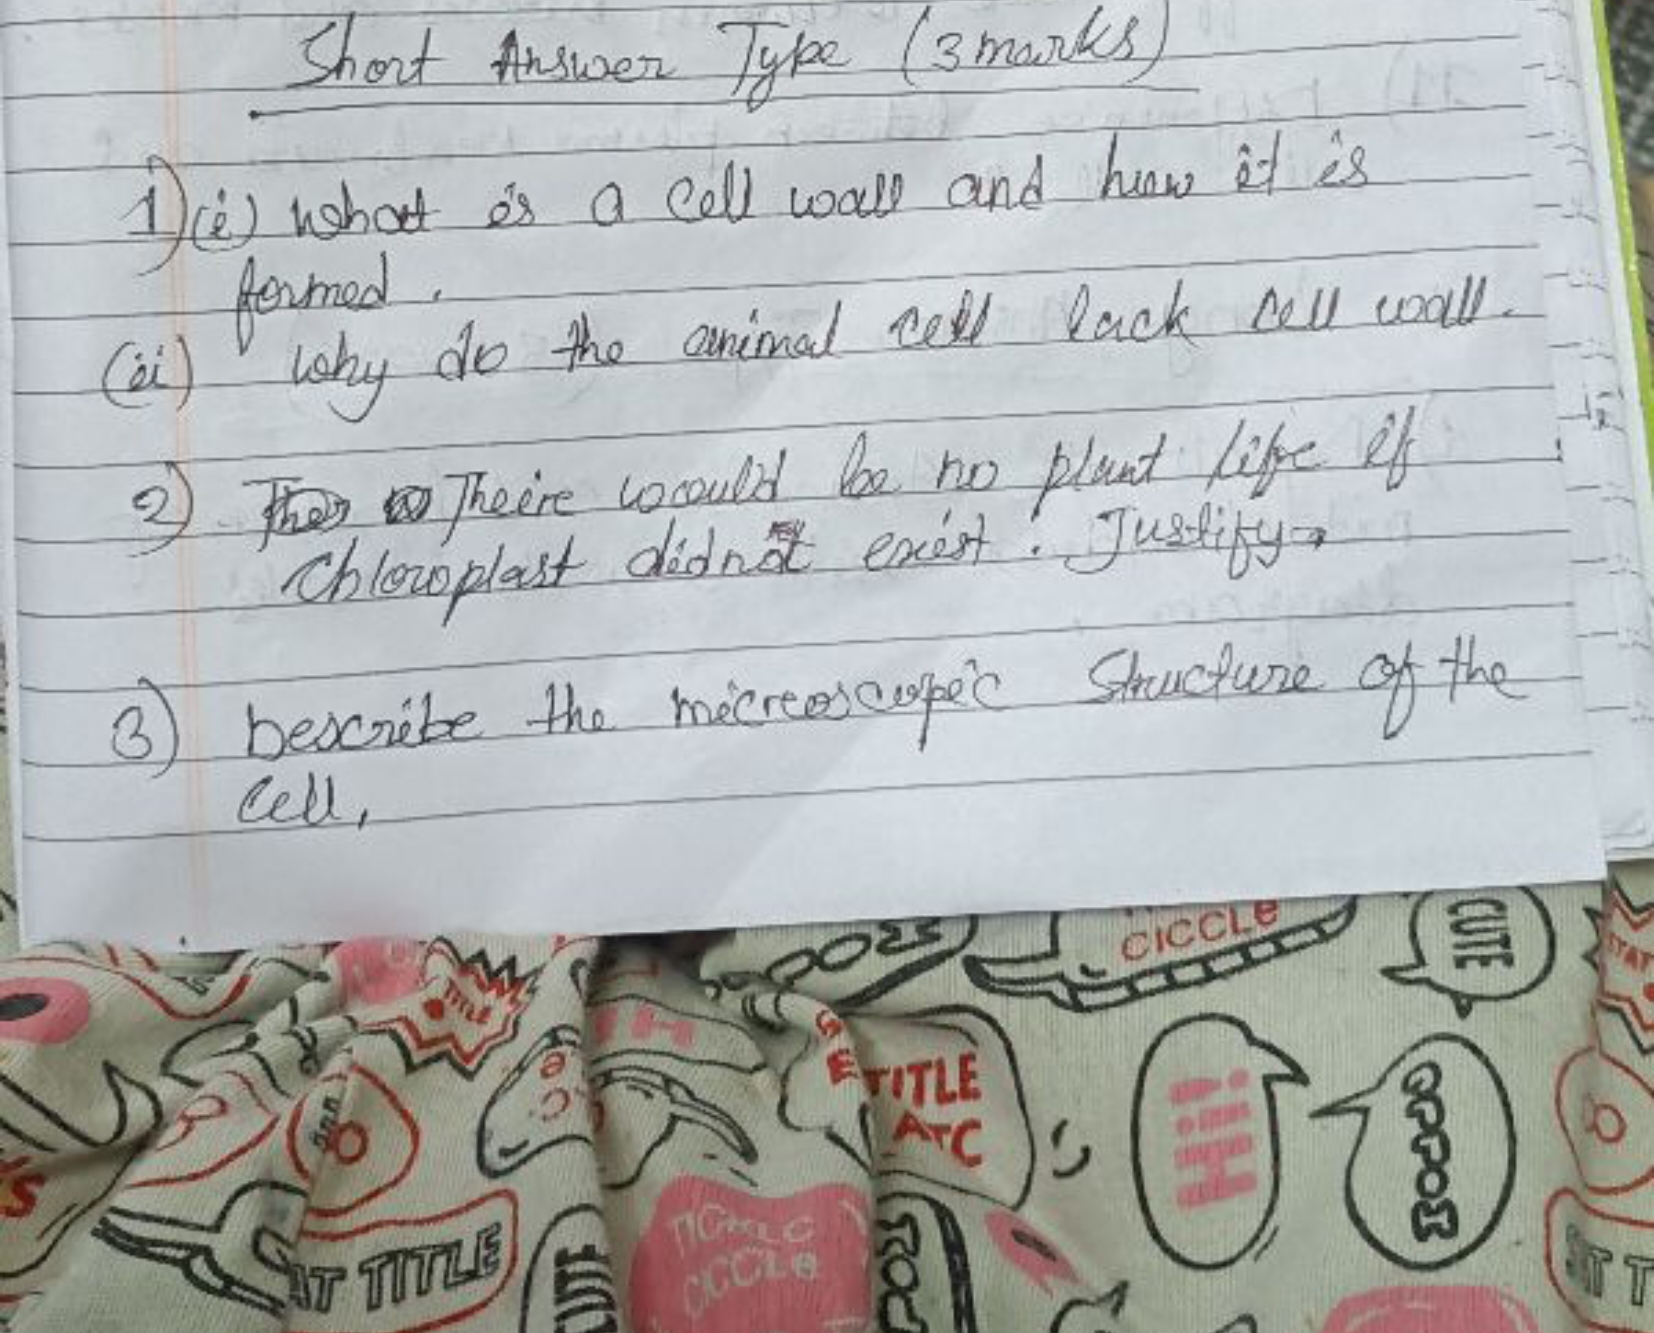 Short Answer Type (3 marks)
1) (i) what is a cell wall and how it is
formed.
(ii) why do the animal cell lack cell wall.
2) There would be no plant life if
chloroplast did not exist. Justify
3) Describe the microscopic structure of the
cell,
CICCLE
CUTE
TITLE
TITLE
ATC
Hii!
AT TITLE
CICCLE